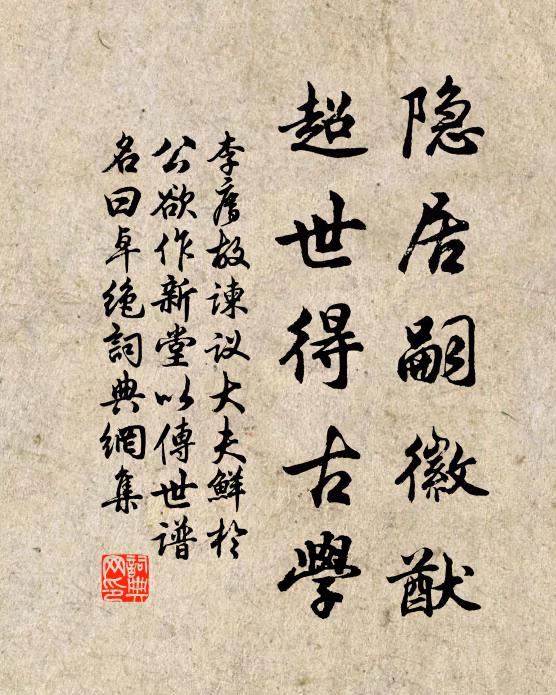 隐居嗣徽猷
超世得古学
李廌故諫议大夫鮮於
公欲作新堂以傳世谱
名曰卓絶詞典網集
詞典
网印